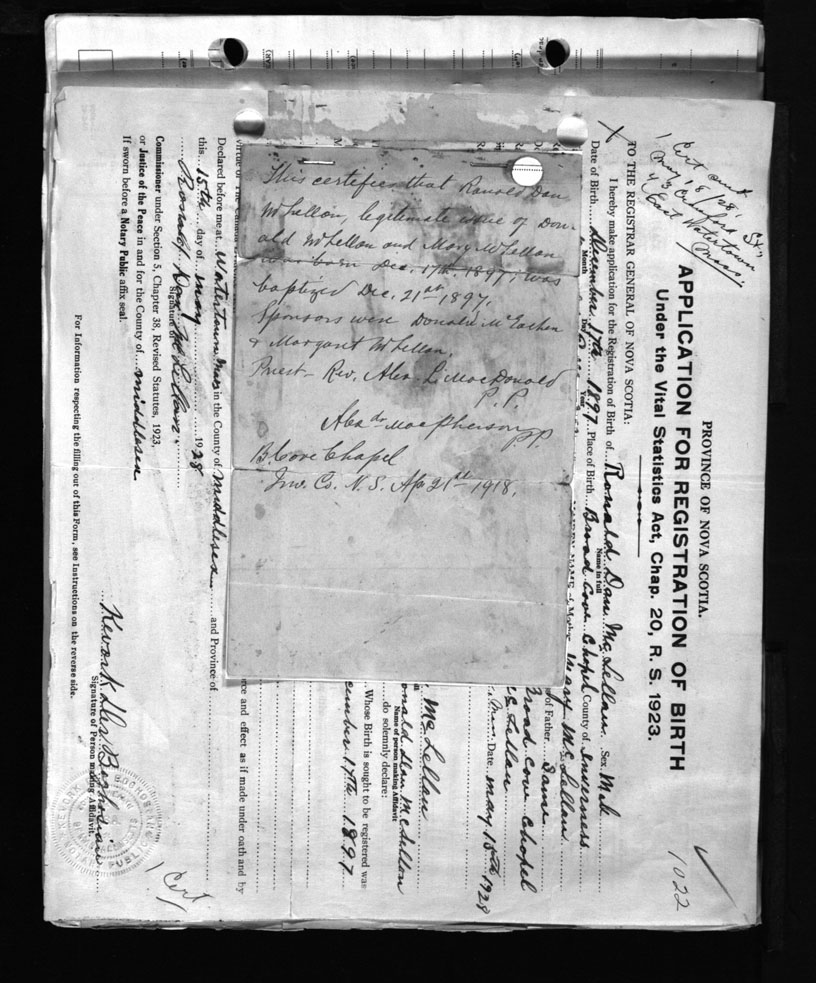 PROVINCE OF NOVA SCOTIA.
APPLICATION FOR REGISTRATION OF BIRTH
Under the Vital Statistics Act, Chap. 20, R. S. 1923.
1022
1 Cert sent
May 18/28,
43 Crawford St.,
East Watertown
Mass.
TO THE REGISTRAR GENERAL OF NOVA SCOTIA:
I hereby make application for the Registration of Birth of Ronald Dan McLellan Sex Male
Name in full
Date of Birth December 17th 1897 Place of Birth Broad Cove Chapel County of Inverness
Month Day Year
of Mother Mary McLellan
of Father Same
Broad Cove Chapel
McLellan
Mass. Date May 15th 1928
McLellan
Ronald Dan McLellan
Name of person making Affidavit
do solemnly declare:
Whose Birth is sought to be registered was
December 17th 1897
force and effect as if made under oath and by
virtue of The Canada
Declared before me at Watertown Mass in the County of Middlesex and Province of
this 15th day of May 1928
Ronald Dan McLellan
Signature of
Commissioner under Section 5, Chapter 38, Revised Statutes, 1923.
or Justice of the Peace in and for the County of Middlesex
If sworn before a Notary Public affix seal.
Signature of Person making Affidavit.
For Information respecting the filling out of this Form, see Instructions on the reverse side.
1 Cert
This certifies that Ranold Dan
McLellan, legitimate issue of Don-
ald McLellan and Mary McLellan
was born Dec. 17th 1897, was
baptized Dec. 21st 1897.
Sponsors were Donald McEachen
& Margaret McLellan.
Priest - Rev. Alex. L. MacDonald
P. P.
Alexdr MacPherson PP.
B. Cove Chapel
Inv. Co. N. S. Ap 21st 1918.